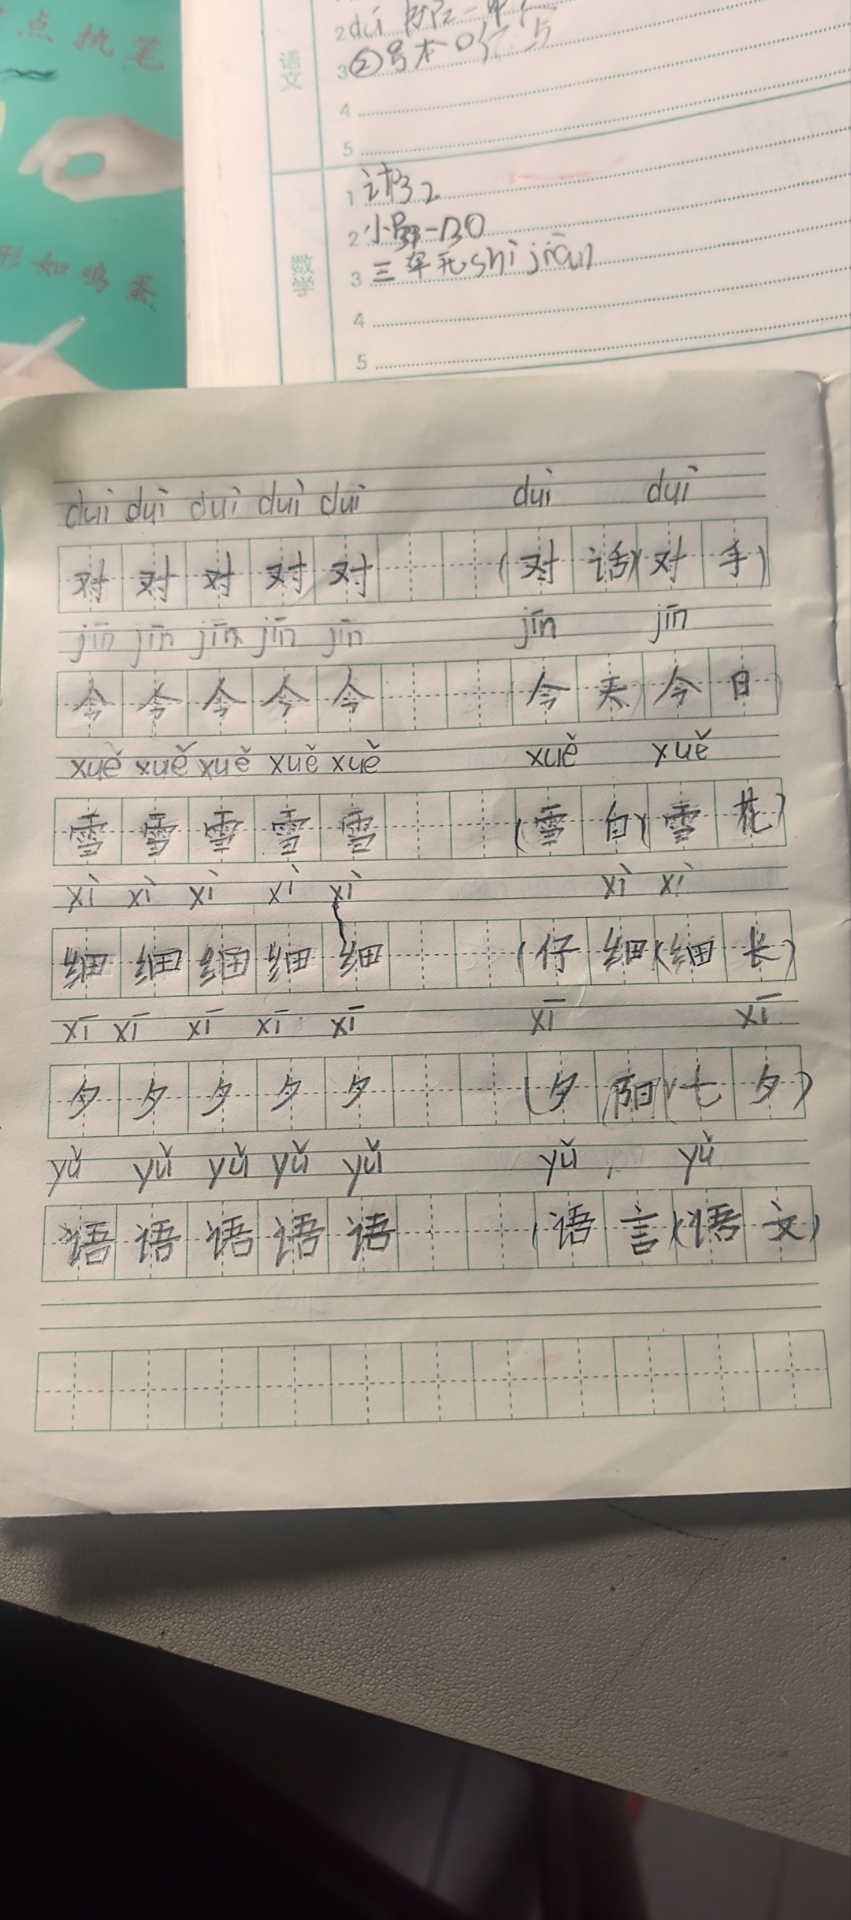 点执笔
形如鸡蛋
语文
2 dú
3 ②号本口
4
5
数学
1
2
3 三单元shí jiàn
4
5
duì duì duì duì duì duì duì
对 对 对 对 对 (对话)(对手)
jīn jīn jīn jīn jīn jīn jīn
今 今 今 今 今 (今天 今日
xuě xuě xuě xuě xuě xuě xuě
雪 雪 雪 雪 雪 (雪白)(雪花)
xì xì xì xì xì xì xì
细 细 细 细 细 (仔细)(细长)
xī xī xī xī xī xī xī
夕 夕 夕 夕 夕 (夕阳)(七夕)
yǔ yǔ yǔ yǔ yǔ yǔ yǔ
语 语 语 语 语 (语言)(语文)